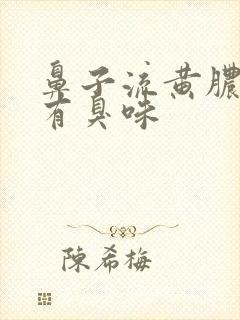 鼻子流黄膿
有臭味
陳希梅